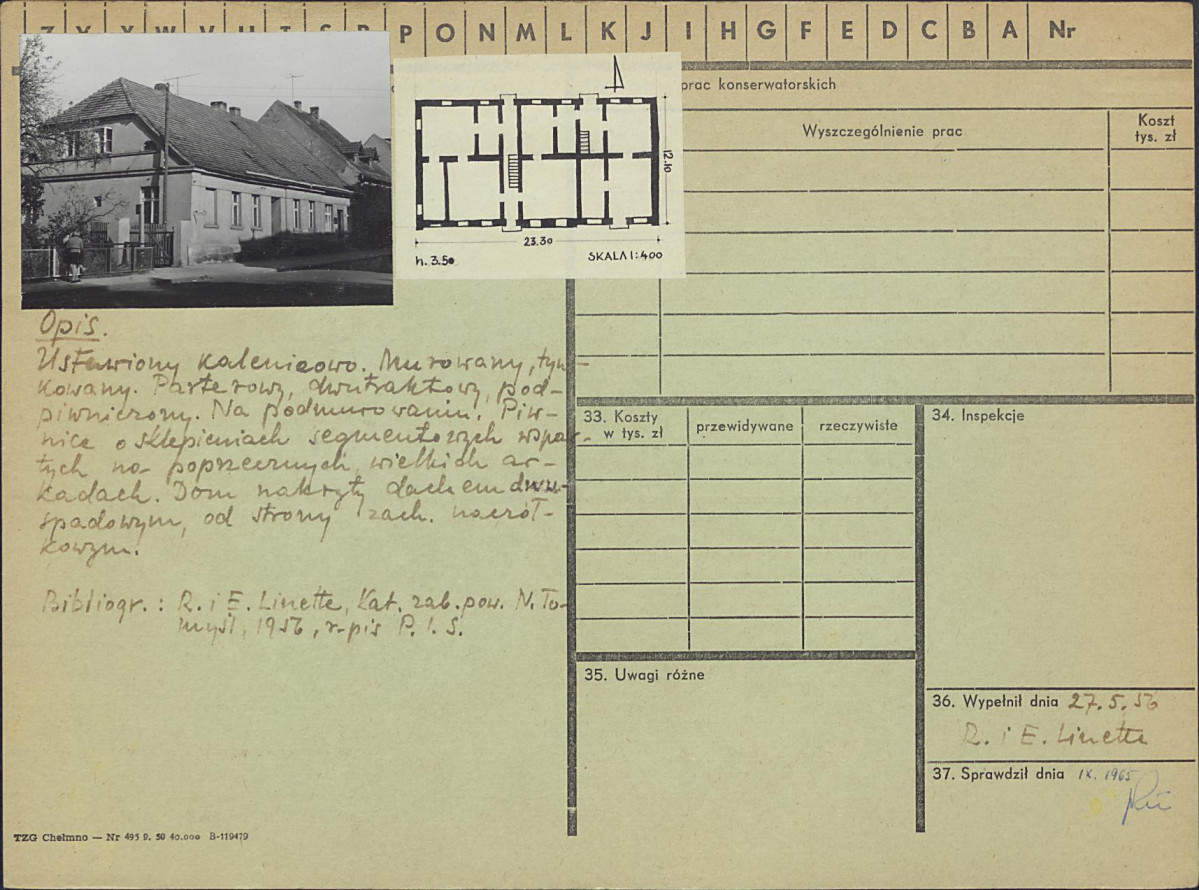 P O N M L K J I H G F E D C B A Nr
prac konserwatorskich
Wyszczególnienie prac
Koszt
tys. zł
12.10
23.30
h. 3.50
SKALA 1:400
Opis.
Ustawiony kalenicowo. Murowany, tyn-
kowany. Parterowy, dwutraktowy, pod-
piwniczony. Na podmurowaniu. Piw-
nice o sklepieniach segmentowych wspar-
tych na poprzecznych, wielkich ar-
kadach. Dom nakryty dachem dwu-
spadowym, od strony zach. naczół-
kowym.
Bibliogr.: R. i E. Linette, Kat. zab. pow. N. To-
myśl, 1956, r-pis P. I. S.
33. Koszty
w tys. zł
przewidywane
rzeczywiste
34. Inspekcje
35. Uwagi różne
36. Wypełnił dnia 27.5.56
R. i E. Linette
37. Sprawdził dnia IX. 1965
TZG Chełmno — Nr 495 9. 50 40.000 B-119479